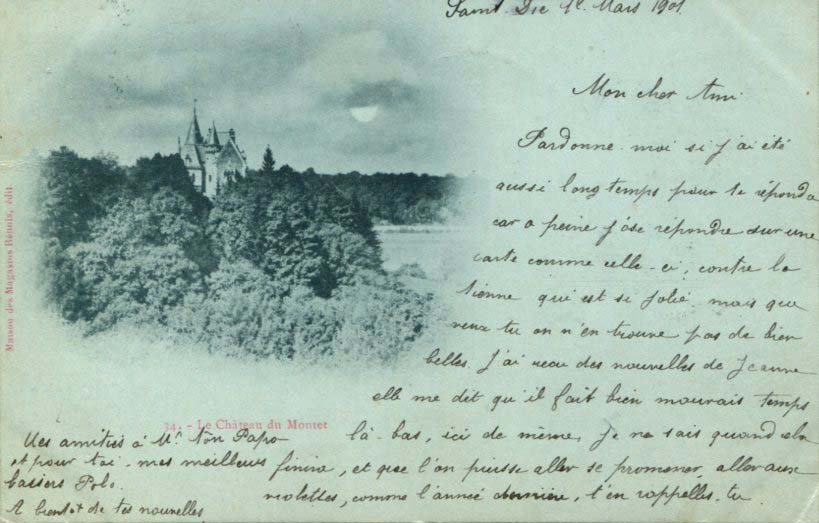 Saint-Dié 12 Mars 1901
Mon cher Ami
Pardonne-moi si j'ai été
aussi longtemps pour te répondre
car a peine j'ose répondre sur une
carte comme celle-ci, contre la
tienne qui est si jolie, mais que
veux tu on n'en trouve pas de bien
belles. J'ai recu des nouvelles de Jeanne
elle me dit qu'il fait bien mauvais temps
là-bas, ici de même, je ne sais quand cela
finira, et que l'on puisse aller se promener, aller aux
violettes, comme l'année dernière, t'en rappelles-tu
Mes amitiés à Mr. Ton Papa
et pour toi mes meilleurs
baisers
A bientot de tes nouvelles
34. - Le Château du Montet
Maison des Magasins Réunis, édit.